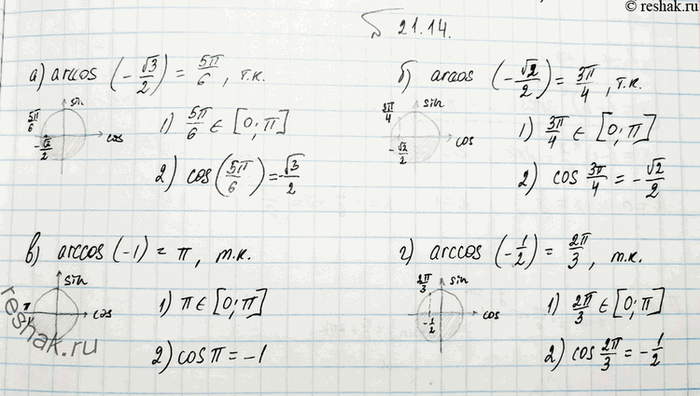 © reshak.ru
21.14.
а) arccos (-√3/2) = 5π/6, т.к.
sin
5π/6
cos
-√2/2
1) 5π/6 ∈ [0; π]
2) cos(5π/6) = -√3/2
б) arccos (-√2/2) = 3π/4, т.к.
sin
5π/4
cos
-√2/2
1) 3π/4 ∈ [0; π]
2) cos 3π/4 = -√2/2
в) arccos (-1) = π, т.к.
sin
π
cos
1) π ∈ [0; π]
2) cos π = -1
г) arccos (-1/2) = 2π/3, т.к.
2π/3
sin
cos
-1/2
1) 2π/3 ∈ [0; π]
2) cos 2π/3 = -1/2
reshak.ru